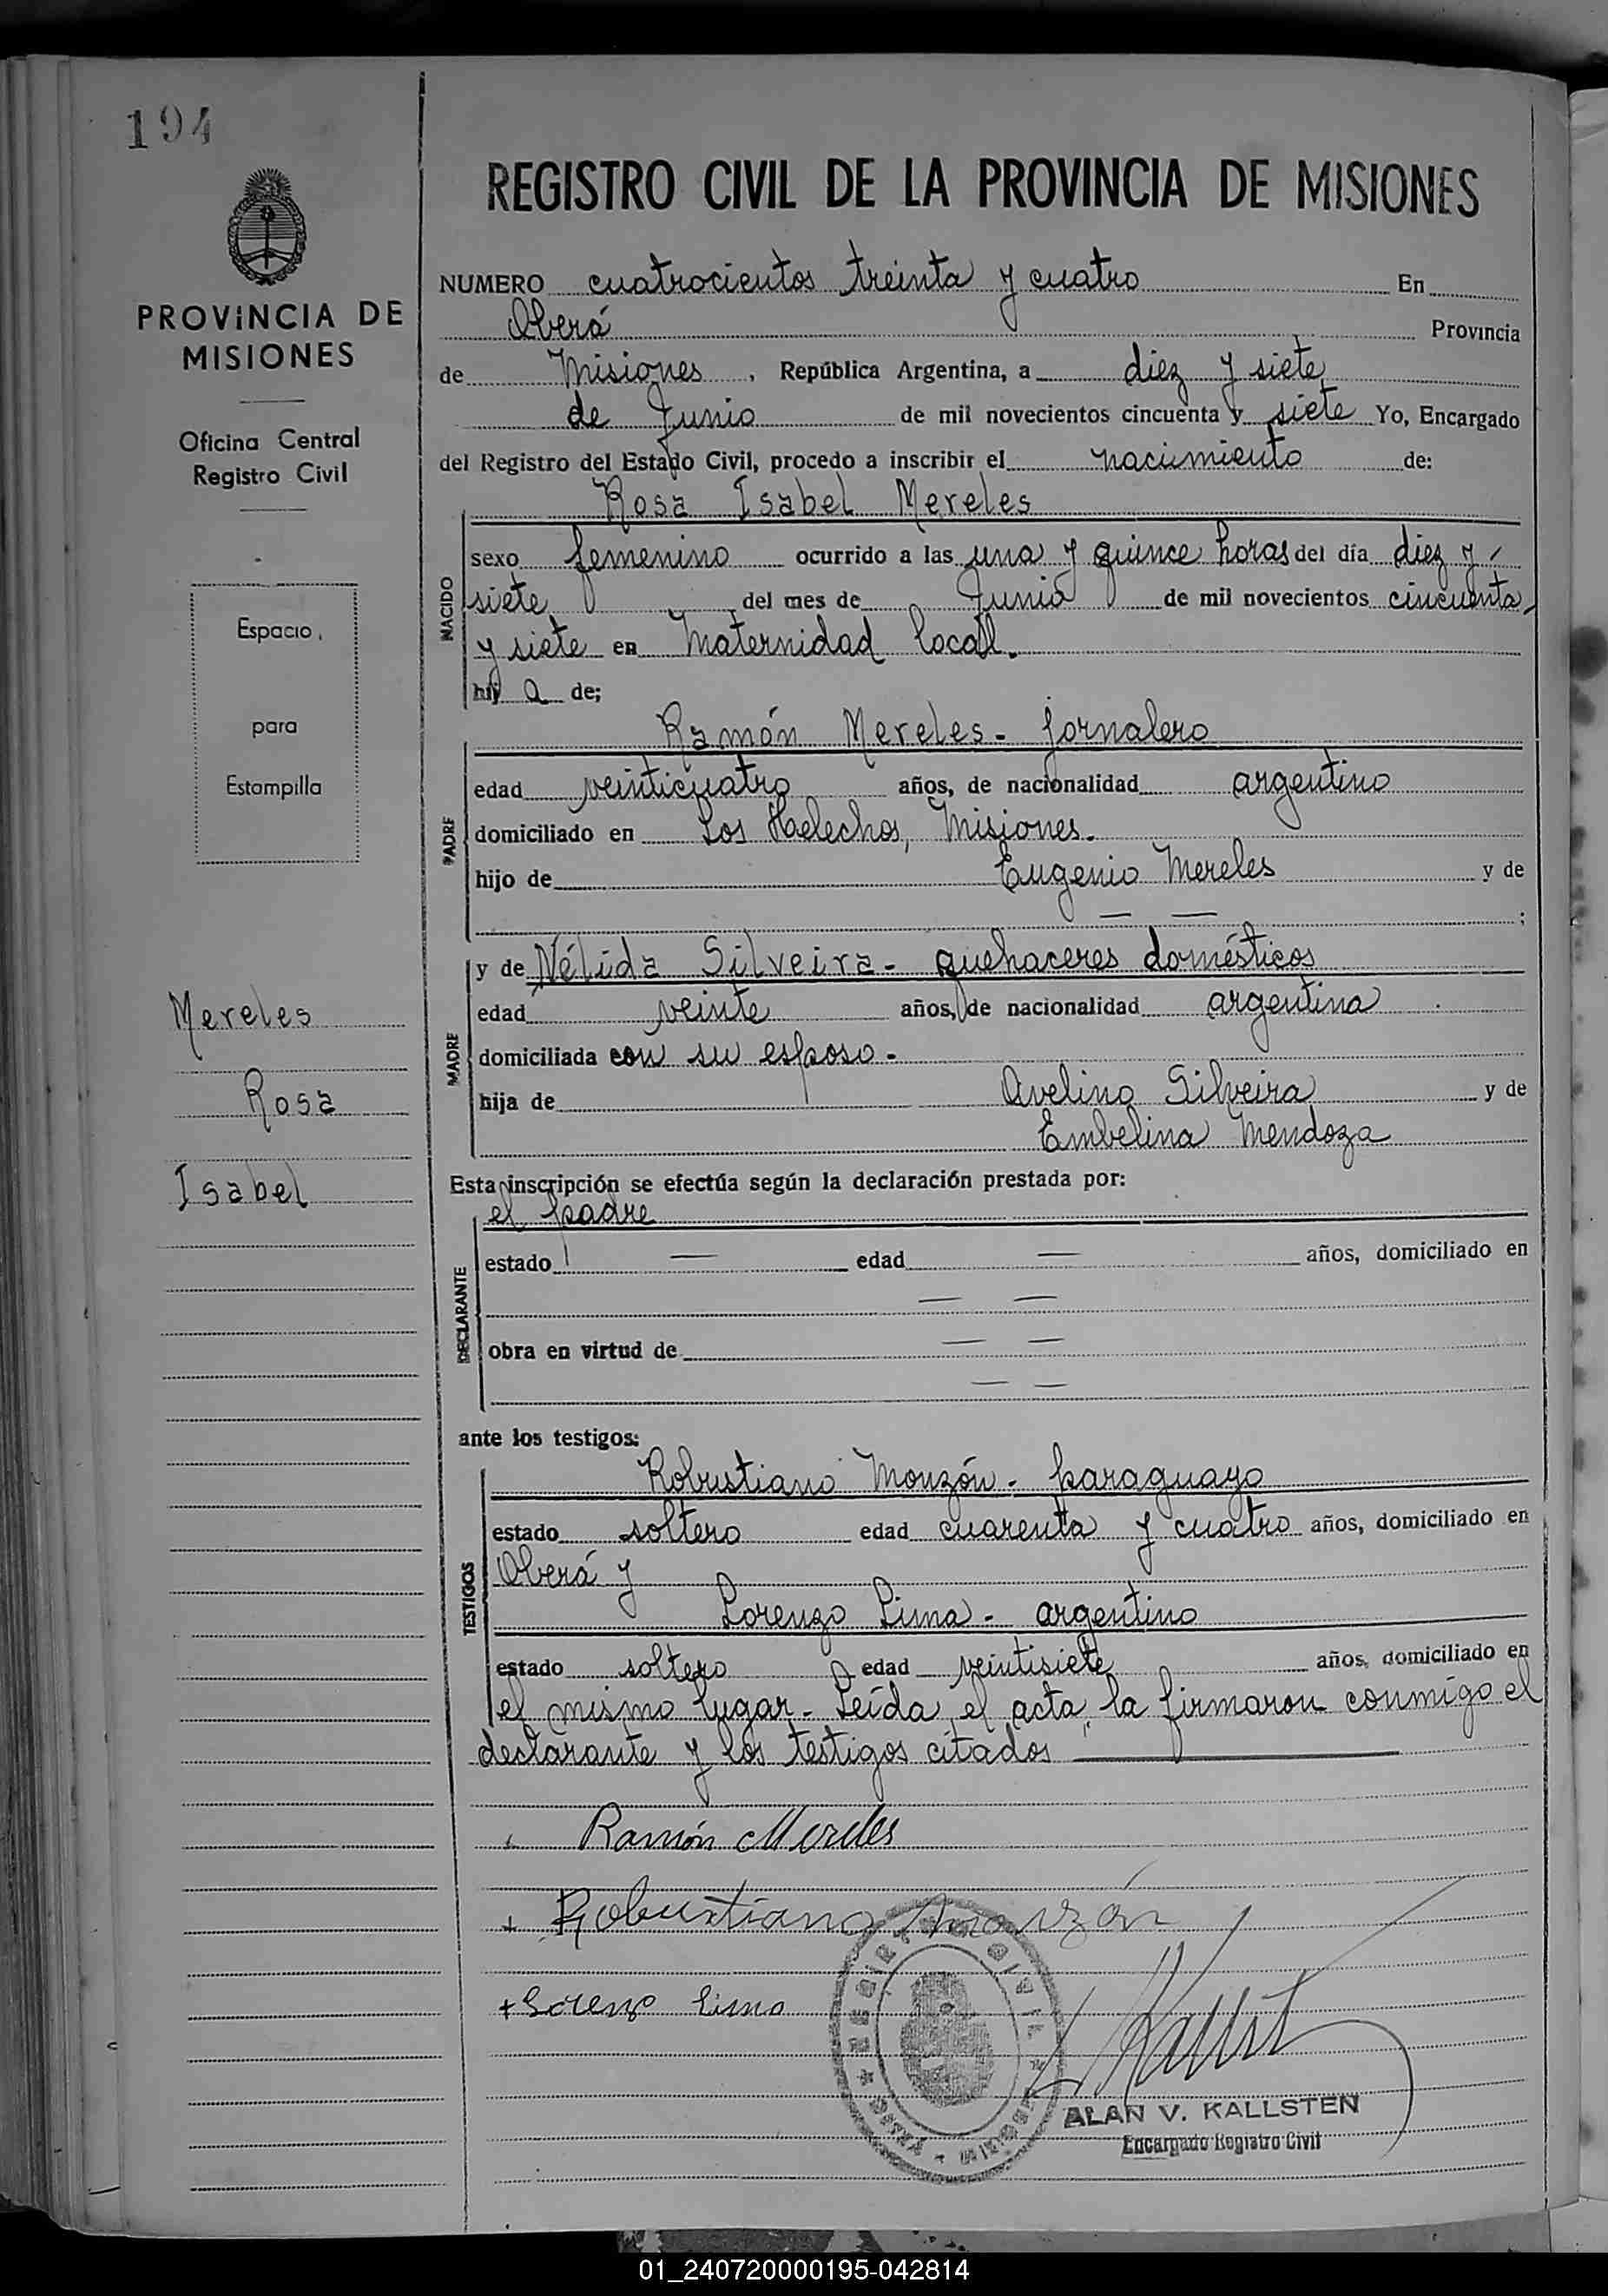 194
PROVINCIA DE
MISIONES
Oficina Central
Registro Civil
Espacio
para
Estampilla
Mereles
Rosa
Isabel
REGISTRO CIVIL DE LA PROVINCIA DE MISIONES
NUMERO cuatrocientos treinta y cuatro En
Oberá Provincia
de Misiones, República Argentina, a diez y siete
de Junio de mil novecientos cincuenta y siete Yo, Encargado
del Registro del Estado Civil, procedo a inscribir el nacimiento de:
Rosa Isabel Mereles
NACIDO
sexo femenino ocurrido a las una y quince horas del día diez y
siete del mes de Junio de mil novecientos cincuenta
y siete en Maternidad local.
hij a de;
Ramón Mereles - jornalero
PADRE
edad veinticuatro años, de nacionalidad argentino
domiciliado en Los Helechos, Misiones.
hijo de Eugenio Mereles y de
— — ;
y de Nélida Silveira - quehaceres domésticos
MADRE
edad veinte años, de nacionalidad argentina
domiciliada con su esposo -
hija de Avelino Silveira y de
Embelina Mendoza
Esta inscripción se efectúa según la declaración prestada por:
el padre
DECLARANTE
estado — edad — años, domiciliado en
— —
obra en virtud de — —
— —
ante los testigos:
Robustiano Monzón - paraguayo
TESTIGOS
estado soltero edad cuarenta y cuatro años, domiciliado en
Oberá y
Lorenzo Lima - argentino
estado soltero edad veintisiete años, domiciliado en
el mismo lugar - Leída el acta, la firmaron conmigo el
declarante y los testigos citados
Ramón Mereles
+ Robustiano Monzón
+ Lorenzo Lima
REGISTRO CIVIL
ALAN V. KALLSTEN
Encargado Registro Civil
01_240720000195-042814